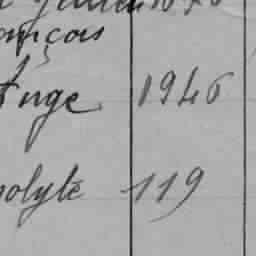 ançois
Ange 1946
polyte 119